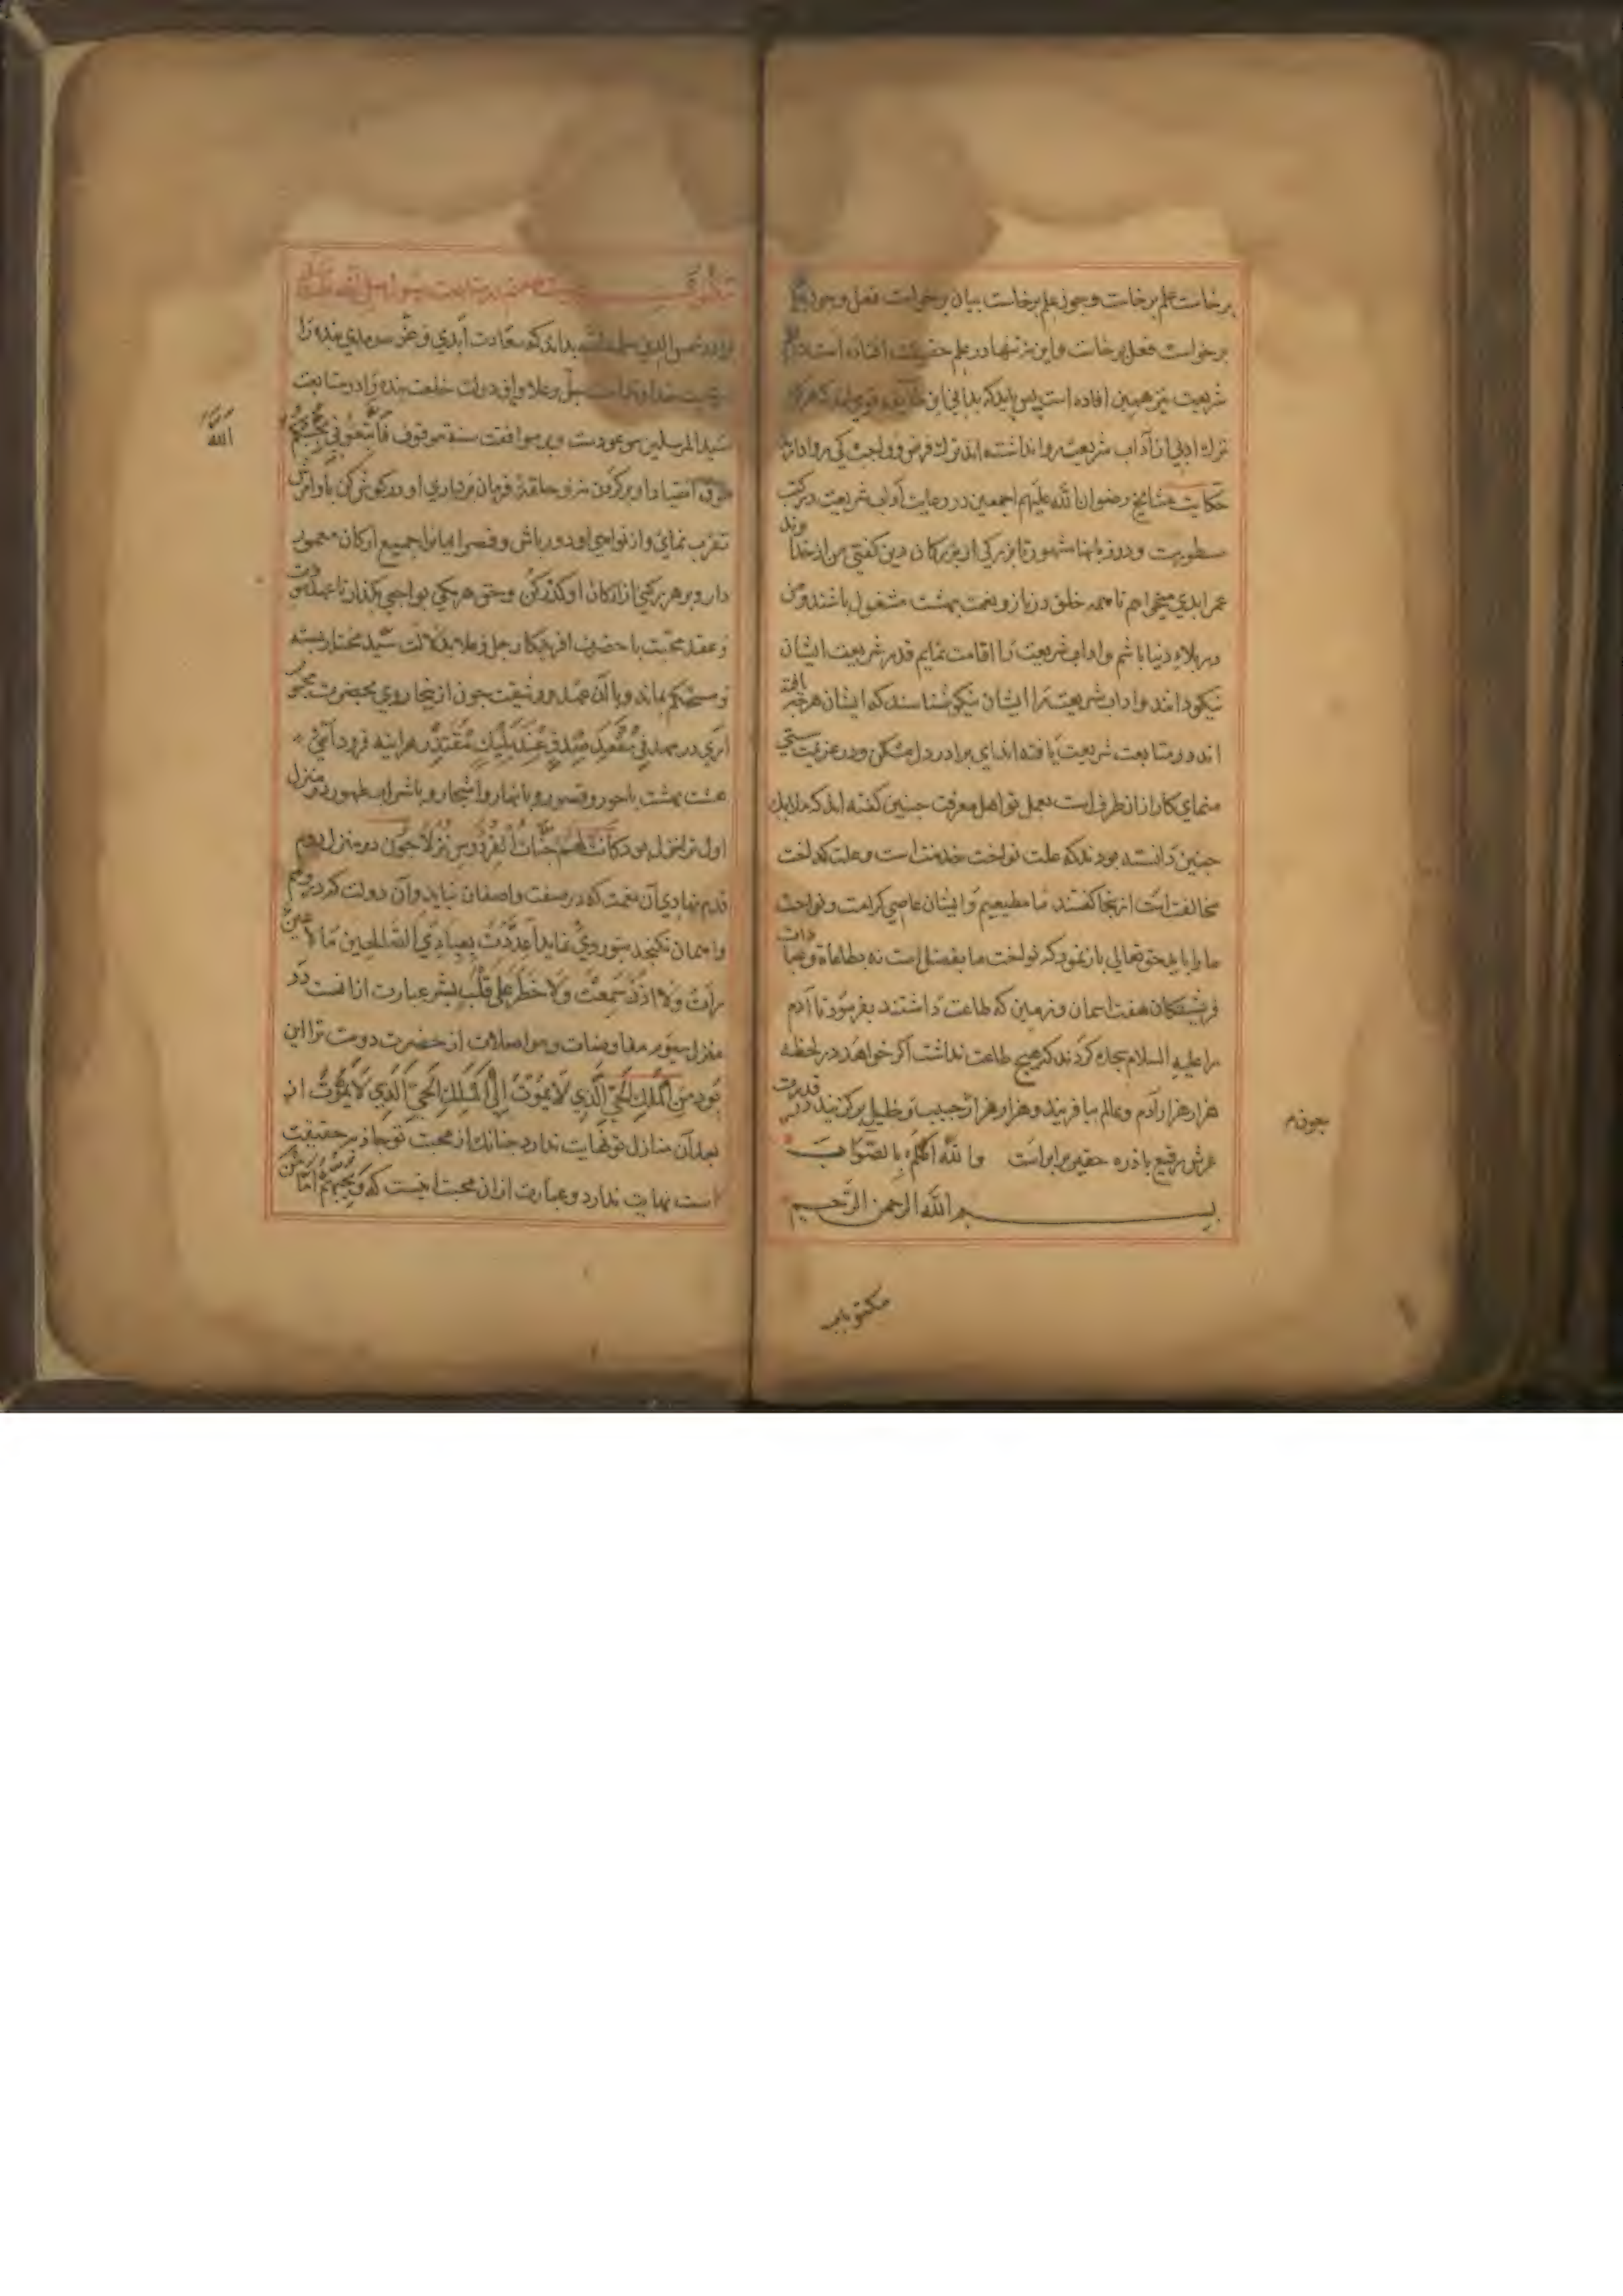 برخاست علم برخاست وچون علم برخاست بیان برخواست فعل وچون
برخواست فعل برخاست واین نه تنها در علم حقیقت افتاده است در
شریعت نیز همین افتاده است پس باید که بدانی این طایفه
ترك ادبی از آداب شریعت روا نداشته اند ترك فرض و واجب کی روا دارند
حکایت مشایخ رضوان الله علیهم اجمعین در رعایت آداب شریعت در کتب
مسطورست ودر زبانها مشهور تا بزرکی از بزرکان دین کفتی من از خداوند
عمر ابدی میخواهم تا همه خلق در ناز ونعمت بهشت مشغول باشند ومن
در بلاء دنیا باشم واداب شریعت را اقامت نمایم قدر شریعت ایشان
نیکو دانند واداب شریعت را ایشان نیکو شناسند که ایشان هرچه یافته
اند در متابعت شریعت یافته اند ای برادر دل مشکن ودر عزیمت سستی
منمای کار از انطرف است بعمل تو اهل معرفت چنین کفته اند که ملایك
چنین دانسته بودند که علت نواخت خدمت است وعلت کداخت
مخالفت است از ینجا کفتند ما مطیعیم وایشان عاصی کرامت ونواخت
ما را باید حق تعالی باز نمود که نواخت ما بفضل است نه بطاعاة وعبادات
فریشتکان هفت اسمان وزمین که طاعت داشتند بفرمود تا آدم
را علیه السلام سجده کردند که هیچ طاعت نداشت اکر خواهد در لحظه
هزار هزار آدم وعالم بیافریند وهزار هزار حبیب وخلیل برکزیند در قدرت
عرش رفیع با ذره حقیر برابر است والله اعلم بالصواب
بسم الله الرحمن الرحیم
چون م
مکتوب
در متابعت رسول صلی الله علیه
برادر شمس الدین سلمه الله بداند که سعادت ابدی وعز سرمدی بنده را
در محبت خداوند است جل وعلا واین دولت خلعت بنده را در متابعت
سید المرسلین موعودست وبر موافقت سنة موقوف فاتبعونی یحببکم
الله
طوق انقیاد او بر کردن نه وحلقة فرمان برداری او در کوش کن باوامرش
تقرب نمای واز نواهی او دور باش وقصر ایمان را بجمیع ارکان معمور
دار وبر هر رکنی از ارکان او کذر کن وحق هر یکی بواجبی بکذار تا عهد
وعقد محبت با حضرت افریدکار جل وعلا بدلالت سید مختار بسته
ومستحکم بماند وبا آن عهد ووثیقت چون از ینجا روی بحضرت محبوب
اری در مهد فی مقعد صدق عند ملیك مقتدر هراینه فرود آئی
هشت بهشت با حور وقصور وبا انهار واشجار وبا شراب طهور در منزل
اول ترا نزل بود کانت لهم جنات الفردوس نزلا چون در منزل دوم
قدم نهادی آن نعمت که در صفت واصفان نیاید وآن دولت که در وهم
واهمان نکنجد بتو روی نماید اعددت لعبادی الصالحین ما لا عین
رأت ولا اذن سمعت ولا خطر علی قلب بشر عبارت از انست در
منزل سیوم مفاوضات ومواصلات از حضرت دوست ترا این
بود من الملك الحی الذی لا یموت الی الملك الحی الذی لا یموت از
بعد آن منازل تو نهایت ندارد چنانك از محبت تو جاذبه حقیقت
است نهایت ندارد وعبارت از ان محبت اینست که